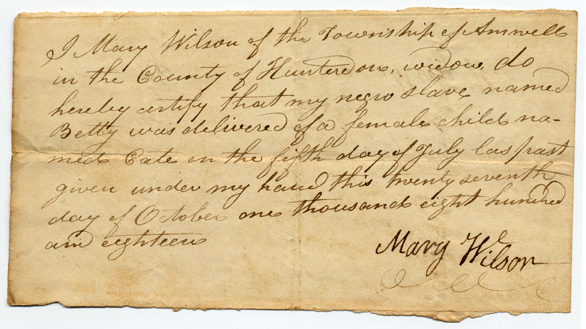 I Mary Wilson of the Township of Amwell
in the County of Hunterdon, widow, do
hereby certify that my negro slave named
Betty was delivered of a female child na-
med Cate in the fifth day of July last past
given under my hand this twenty seventh
day of October one thousand eight hundred
and eighteen
Mary Wilson